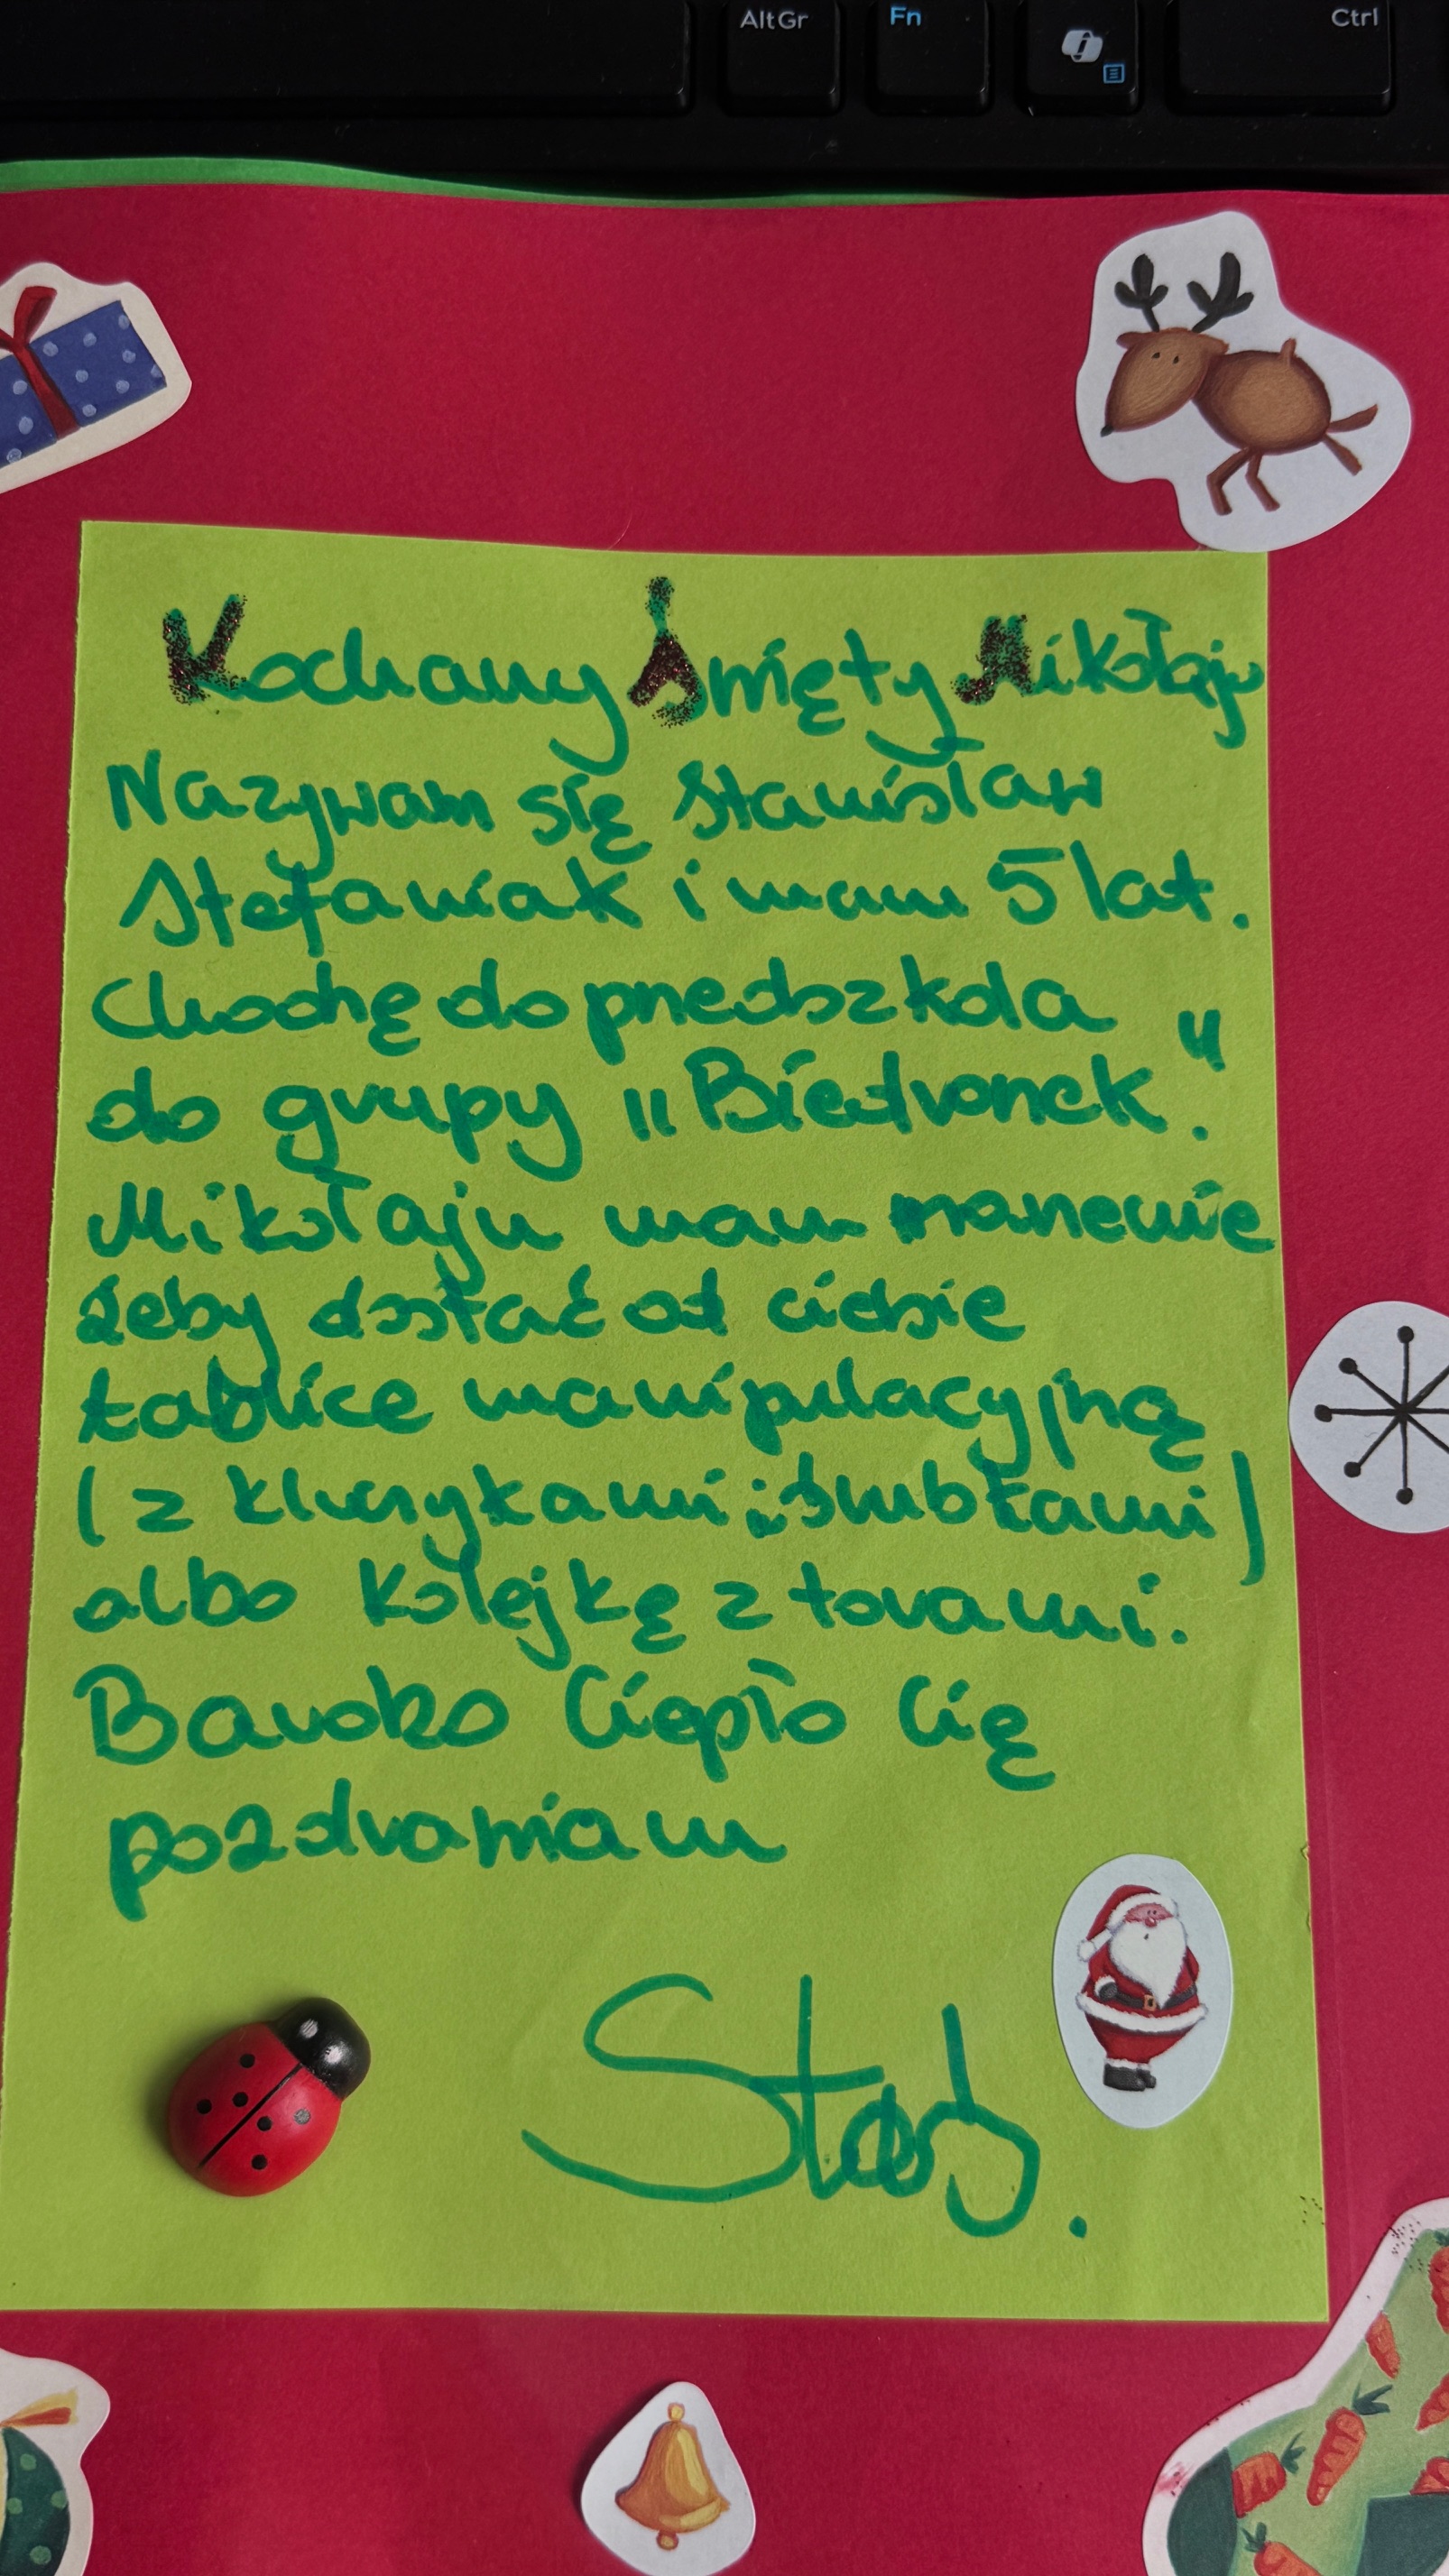 AltGr
Fn
Ctrl
Kochany Święty Mikołaju
Nazywam się Stanisław
Stefaniak i mam 5 lat.
Chodzę do przedszkola
do grupy „Biedronek”.
Mikołaju mam marzenie
żeby dostać od ciebie
tablice manipulacyjną
(z kluczykami i śrubkami)
albo kolejkę z torami.
Bardzo Ciepło Cię
pozdrawiam
Staś.